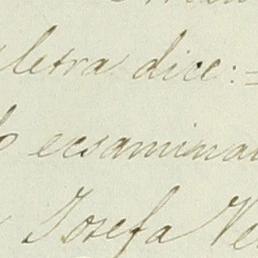 letra dice:=
ecsamina
Josefa Ve